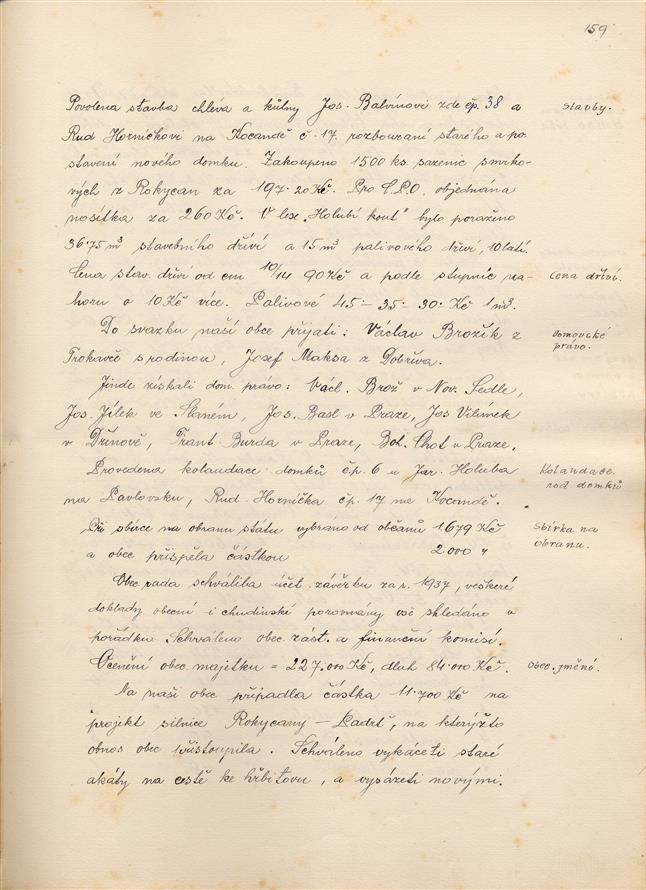 159
Povolena stavba chleva a kůlny Jos. Balvínovi zde čp. 38 a
stavby.
Rud Horníčkovi na Kocandě č. 17. rozbourání starého a po-
stavení nového domku. Zakoupeno 1500 ks. sazenic smrko-
vých z Rokycan za 197.20 Kč. Pro C.P.O. objednána
nosítka za 260 Kč. V lese „Holubí kout" bylo poraženo
36.75 m³ stavebního dříví a 15 m³ palivového dříví, 10 latí.
Cena stav. dříví od cm 10/14 90 Kč a podle stupnic na-
cena dříví.
horu o 10 Kč více. Palivové 45 - 35. 30. Kč 1 m³.
Do svazku naší obce přijati: Václav Brožík z
Domovské
Trokavče s rodinou, Josef Maksa z Dobříva.
právo.
Jinde získali dom. právo: Václ. Brož v Nov. Sedle,
Jos. Jílek ve Slaném, Jos. Basl v Praze, Jos Vilimek
v Dřínově, Frant. Burda v Praze, Bol. Chot v Praze.
Provedena kolaudace domků čp. 6 u Jar. Holuba
Kolaudace
na Pavlovsku, Rud. Horníčka čp. 17 na Kocandě.
rod. domků
Při sbírce na obranu státu vybráno od občanů 1679 Kč
Sbírka na
a obec přispěla částkou 2.000 "
obranu.
Obec. rada schválila účet. závěrku za r. 1937, veškeré
doklady obecní i chudinské porovnány vše shledáno v
pořádku. Schváleno obec. zást. a finanční komisí.
Ocenění obec. majetku = 227.000 Kč, dluh 84.000 Kč.
Obec. jmění.
Na naši obec připadla částka 11.700 Kč na
projekt silnice Rokycany - Padrť, na kterýžto
obnos obec přistoupila. Schváleno vykáceti staré
akáty na cestě ke hřbitovu, a vysázeti novými.